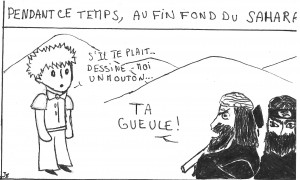 PENDANT CE TEMPS, AU FIN FOND DU SAHARA
S'IL TE PLAIT...
DESSINE-MOI
UN MOUTON...
TA
GUEULE!